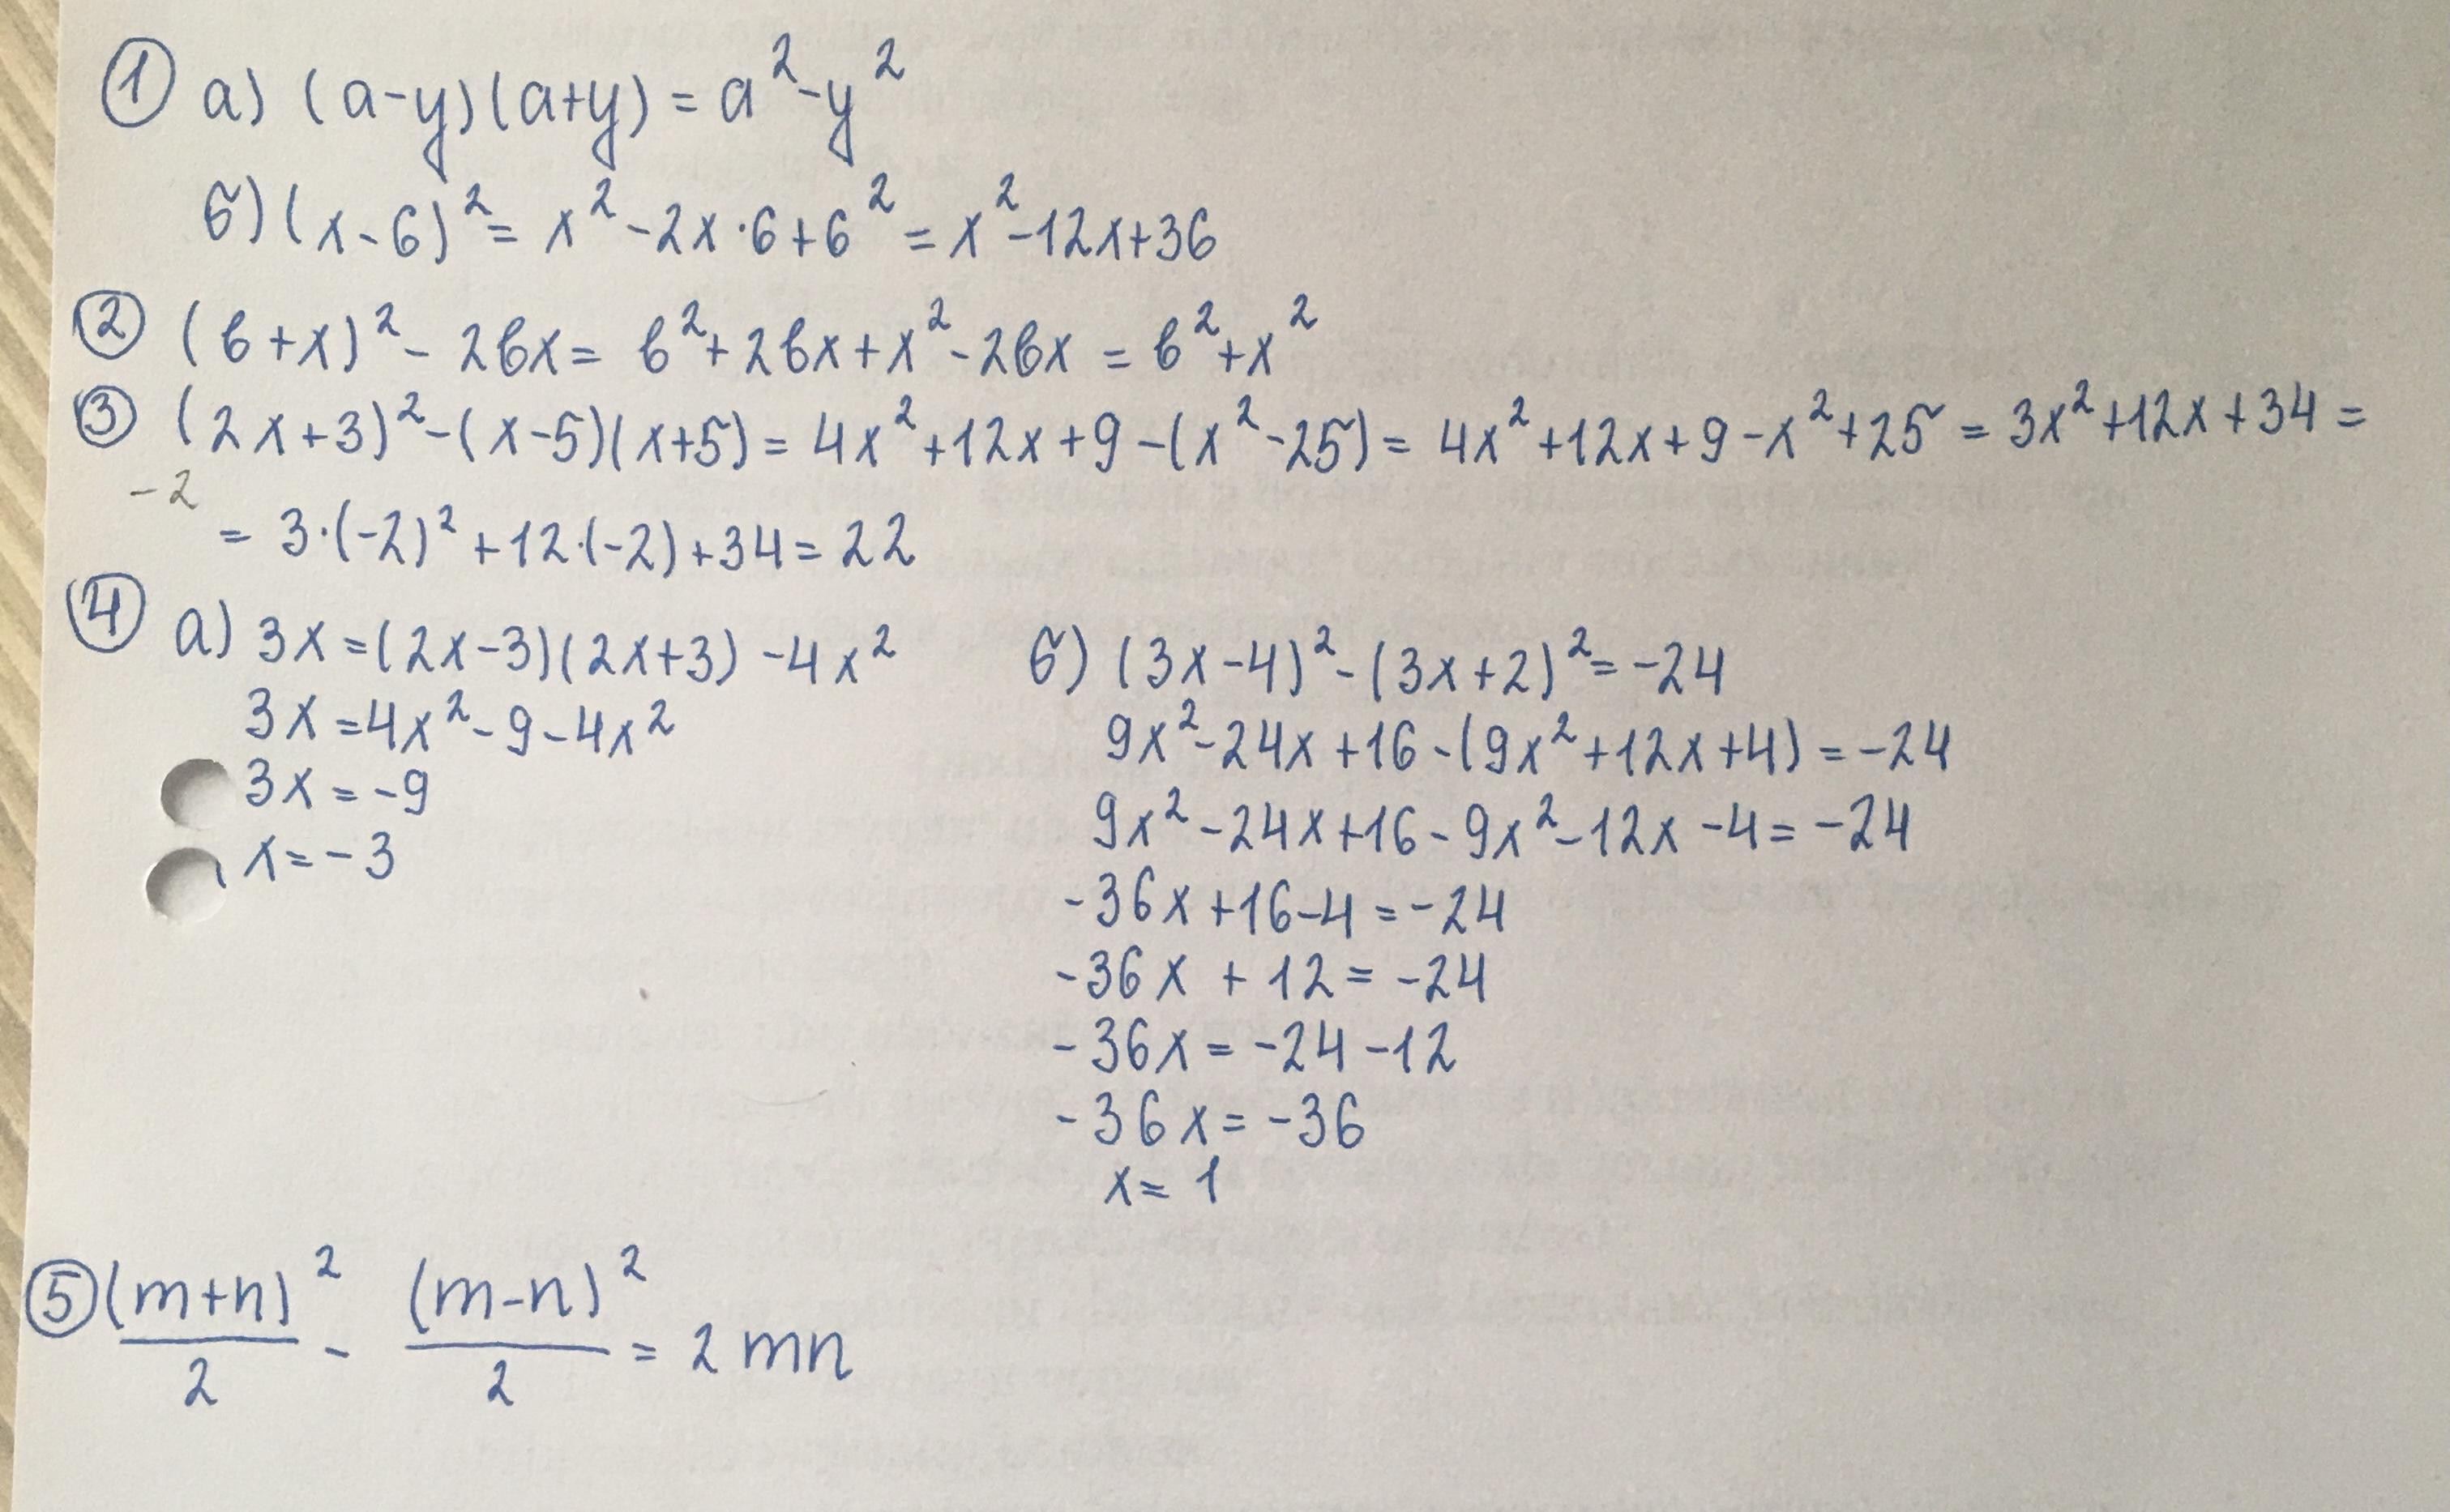 ① а) (a-y)(a+y) = a²-y²
б) (x-6)² = x²-2x·6+6² = x²-12x+36
② (в+x)² - 2вx = в²+2вx+x²-2вx = в²+x²
③ (2x+3)²-(x-5)(x+5) = 4x²+12x+9-(x²-25) = 4x²+12x+9-x²+25 = 3x²+12x+34 =
-2
= 3·(-2)²+12·(-2)+34 = 22
④ а) 3x=(2x-3)(2x+3)-4x²
3x=4x²-9-4x²
3x=-9
x=-3
б) (3x-4)²-(3x+2)²=-24
9x²-24x+16-(9x²+12x+4)=-24
9x²-24x+16-9x²-12x-4=-24
-36x+16-4=-24
-36x+12=-24
-36x=-24-12
-36x=-36
x=1
⑤ (m+n)²/2 - (m-n)²/2 = 2mn